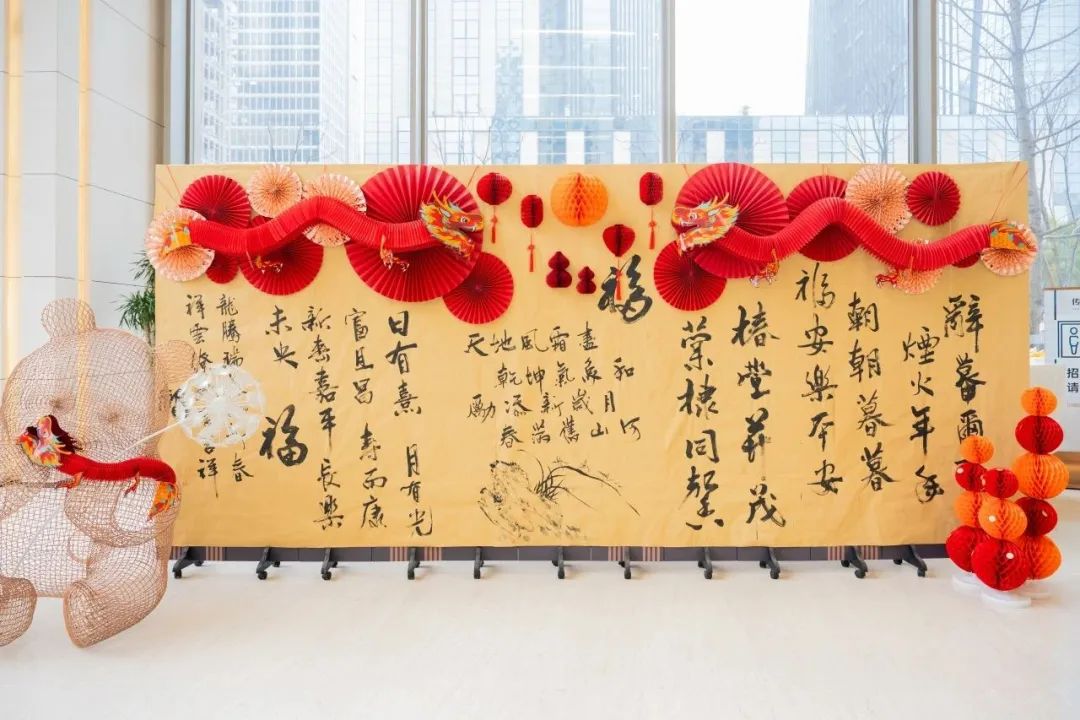 辭暮爾
煙火年年
朝朝暮暮
福安樂平安
椿萱並茂
棠棣同馨
福
天地風霜盡
乾坤氣象和
添新歲月
春滿舊山河
日有熹 月有光
富且昌 壽而康
新春嘉平 長樂
未央 福
龍騰瑞 春
祥雲 祥
招
请